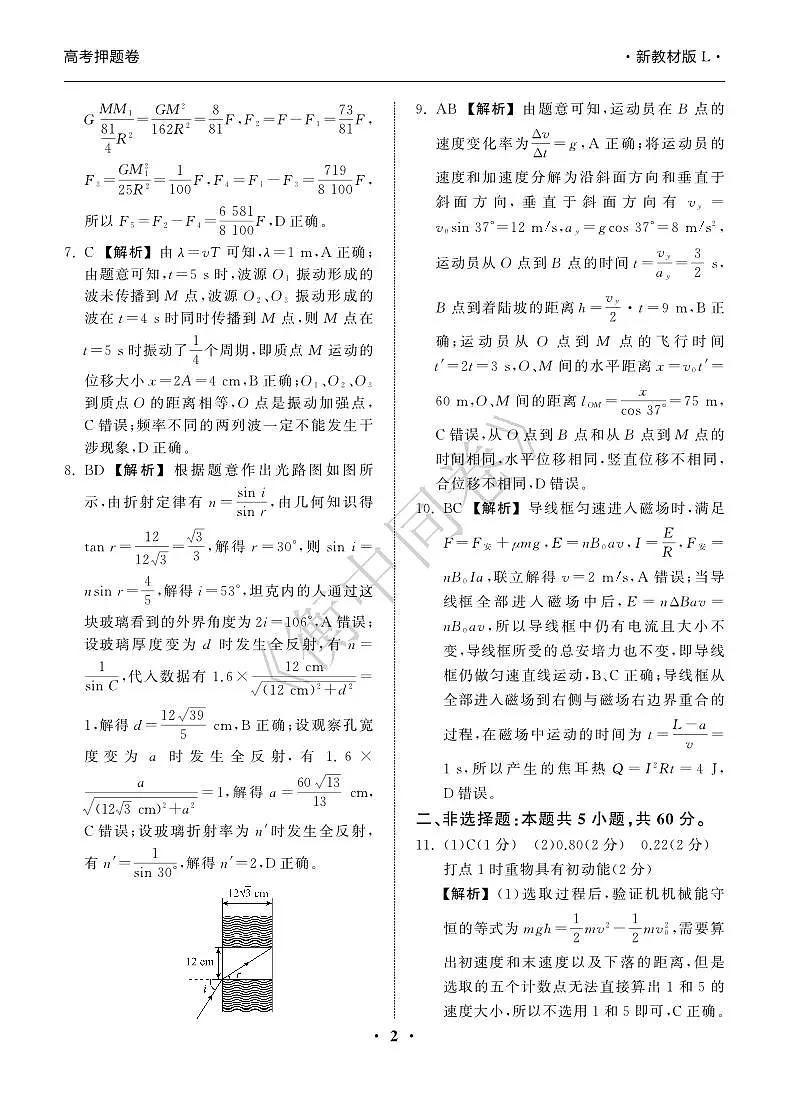 高考押题卷
·新教材版 L·
G\frac{MM_1}{\frac{81}{4}R^2}=\frac{GM^2}{162R^2}=\frac{8}{81}F,F_2=F-F_1=\frac{73}{81}F,
F_3=\frac{GM_1^2}{25R^2}=\frac{1}{100}F,F_4=F_1-F_3=\frac{719}{8 100}F,
所以 F_5=F_2-F_4=\frac{6 581}{8 100}F,D正确。
7. C 【解析】由 λ=vT 可知,λ=1 m,A正确;
由题意可知,t=5 s时,波源 O_1 振动形成的
波未传播到 M 点,波源 O_2、O_3 振动形成的
波在 t=4 s 时同时传播到 M 点,则 M 点在
t=5 s时振动了\frac{1}{4}个周期,即质点 M 运动的
位移大小 x=2A=4 cm,B正确;O_1、O_2、O_3
到质点 O 的距离相等,O 点是振动加强点,
C错误;频率不同的两列波一定不能发生干
涉现象,D正确。
8. BD 【解析】根据题意作出光路图如图所
示,由折射定律有 n=\frac{sin i}{sin r},由几何知识得
tan r=\frac{12}{12\sqrt{3}}=\frac{\sqrt{3}}{3},解得 r=30°,则 sin i=
nsin r=\frac{4}{5},解得 i=53°,坦克内的人通过这
块玻璃看到的外界角度为2i=106°,A错误;
设玻璃厚度变为 d 时发生全反射,有 n=
\frac{1}{sin C},代入数据有 1.6×\frac{12 cm}{\sqrt{(12 cm)^2+d^2}}=
1,解得 d=\frac{12\sqrt{39}}{5} cm,B正确;设观察孔宽
度变为 a 时发生全反射,有 1.6×
\frac{a}{\sqrt{(12\sqrt{3} cm)^2+a^2}}=1,解得 a=\frac{60\sqrt{13}}{13} cm,
C错误;设玻璃折射率为 n′时发生全反射,
有 n′=\frac{1}{sin 30°},解得 n′=2,D正确。
12√3 cm
12 cm
r
i
9. AB 【解析】由题意可知,运动员在 B 点的
速度变化率为\frac{Δv}{Δt}=g,A正确;将运动员的
速度和加速度分解为沿斜面方向和垂直于
斜面方向,垂直于斜面方向有 v_y=
v_0sin 37°=12 m/s,a_y=gcos 37°=8 m/s²,
运动员从 O 点到 B 点的时间 t=\frac{v_y}{a_y}=\frac{3}{2} s,
B 点到着陆坡的距离 h=\frac{v_y}{2}·t=9 m,B正
确;运动员从 O 点到 M 点的飞行时间
t′=2t=3 s,O、M 间的水平距离 x=v_0t′=
60 m,O、M 间的距离 l_{OM}=\frac{x}{cos 37°}=75 m,
C错误,从 O 点到 B 点和从 B 点到 M 点的
时间相同,水平位移相同,竖直位移不相同,
合位移不相同,D错误。
10. BC 【解析】导线框匀速进入磁场时,满足
F=F_安+μmg,E=nB_0av,I=\frac{E}{R},F_安=
nB_0Ia,联立解得 v=2 m/s,A错误;当导
线框全部进入磁场中后,E=nΔBav=
nB_0av,所以导线框中仍有电流且大小不
变,导线框所受的总安培力也不变,即导线
框仍做匀速直线运动,B、C正确;导线框从
全部进入磁场到右侧与磁场右边界重合的
过程,在磁场中运动的时间为 t=\frac{L-a}{v}=
1 s,所以产生的焦耳热 Q=I²Rt=4 J,
D错误。
二、非选择题:本题共 5 小题,共 60 分。
11. (1)C(1分) (2)0.80(2分) 0.22(2分)
打点1时重物具有初动能(2分)
【解析】(1)选取过程后,验证机机械能守
恒的等式为 mgh=\frac{1}{2}mv²-\frac{1}{2}mv_0²,需要算
出初速度和末速度以及下落的距离,但是
选取的五个计数点无法直接算出1和5的
速度大小,所以不选用1和5即可,C正确。
《衡中同卷》
· 2 ·